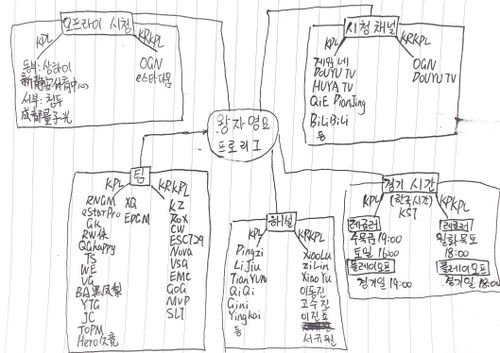 오프라인 시청
KPL
KRKPL
동부: 상하이
서부: 청두
成都量子光
OGN
e스타디움
시청 채널
KPL
KRKPL
DOUYU TV
HUYA TV
QiE DianJing
BiLiBiLi
등
OGN
DOUYU TV
왕자영요
프로리그
팀
KPL
KRKPL
RNGM
eStarPro
GK
RW侠
QGhappy
TS
WE
VG
BA黑凤梨
YTG
JC
TOPM
Hero久竞
XQ
EDGM
KZ
RoX
CW
ESC729
Nova
VSG
EMC
GoG
MVP
SLT
해설
KPL
KRKPL
Pingzi
LiJiu
TianYUN
QiQi
Gini
Yingkai
등
XiaoLu
ZiLin
XiaoYu
이동진
고수진
이진표
경기 시간
(한국시간)
KST
KPL
KRKPL
수목금 19:00
토일 16:00
플레이오프
경기일 19:00
일화목토
18:00
플레이오프
경기일 18:00